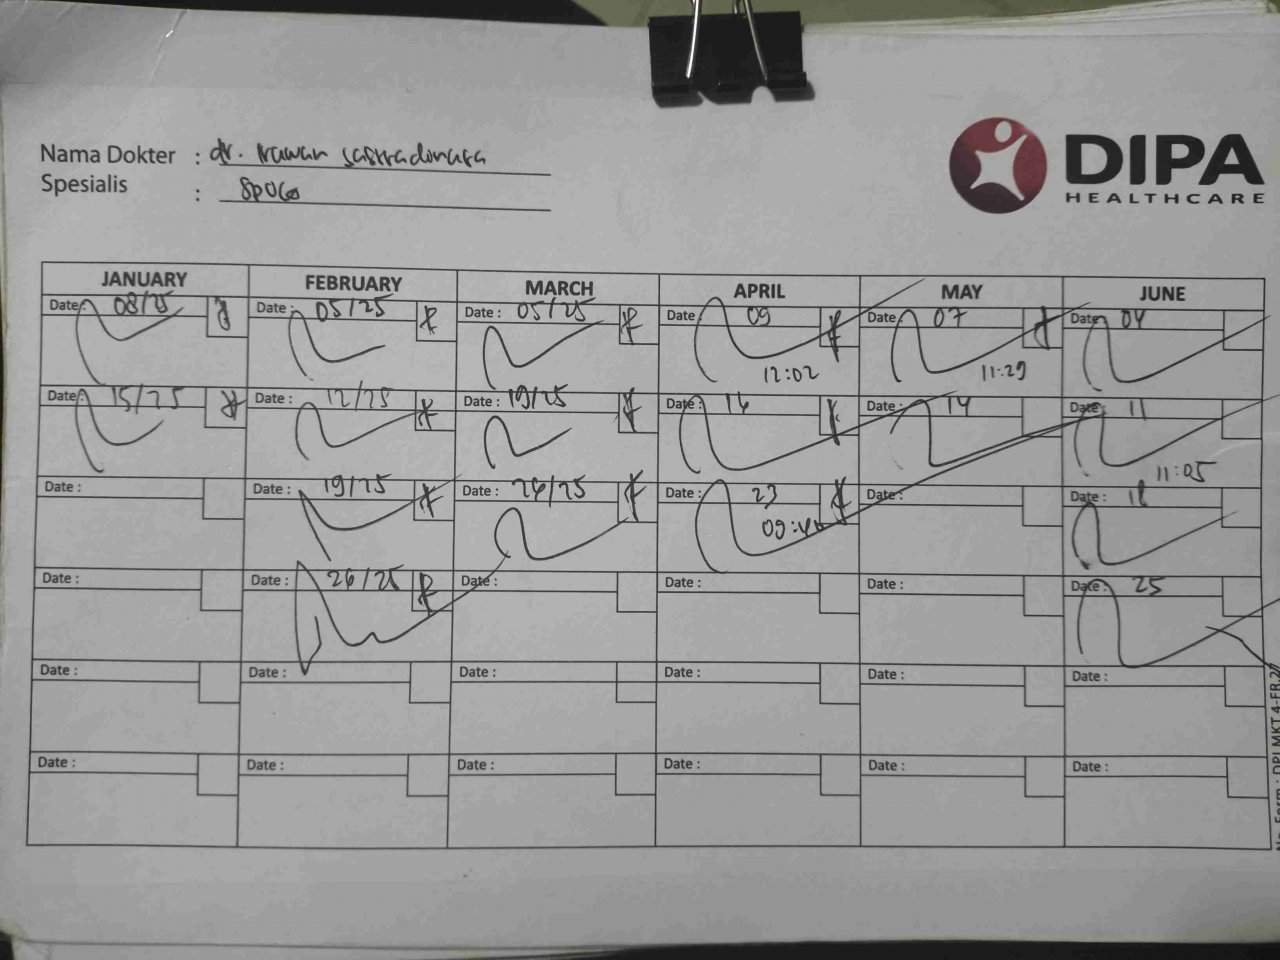 DIPA
HEALTHCARE
Nama Dokter : dr. Irawan Sastradinata
Spesialis : SpOG
JANUARY FEBRUARY MARCH APRIL MAY JUNE
Date: 08/25 Date: 05/25 Date: 05/25 Date: 09 Date: 07 Date: 04
12:02 11:29
Date: 15/25 Date: 12/25 Date: 19/25 Date: 16 Date: 14 Date: 11
11:05
Date: Date: 19/25 Date: 26/25 Date: 23 Date: Date: 18
Date: Date: 26/25 Date: Date: Date: Date: 25
Date: Date: Date: Date: Date: Date:
Date: Date: Date: Date: Date: Date: